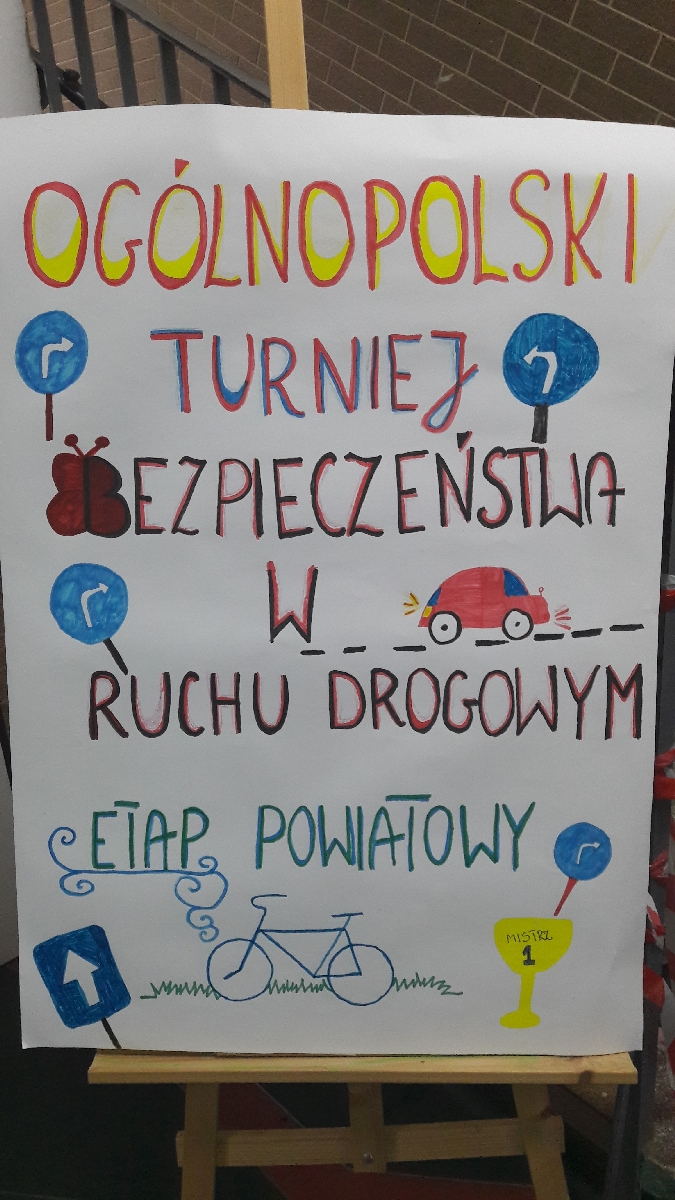 OGÓLNOPOLSKI
TURNIEJ
BEZPIECZEŃSTWA
W
RUCHU DROGOWYM
ETAP POWIATOWY
MISTRZ
1